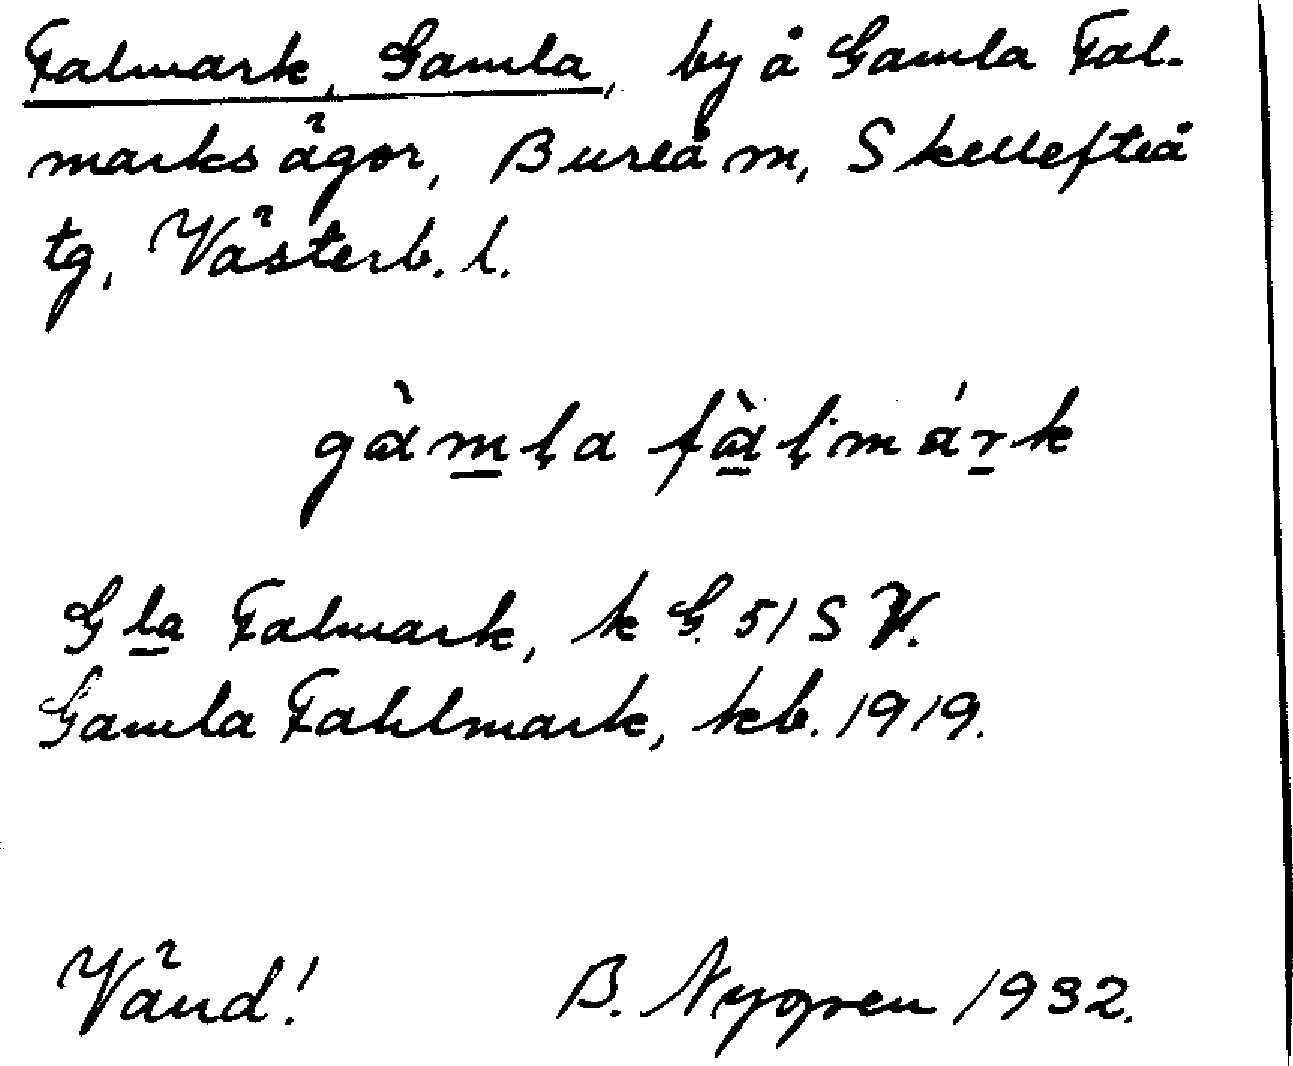 Falmark, Gamla, by å Gamla Fal-
marks ägor, Bureå m, Skellefteå
tg, Västerb. l.
gàm̲la fà̲lmár̲k
Gla Falmark, k G. 51 S V.
Gamla Fahlmark, kb. 1919.
Vänd! B. Nygren 1932.